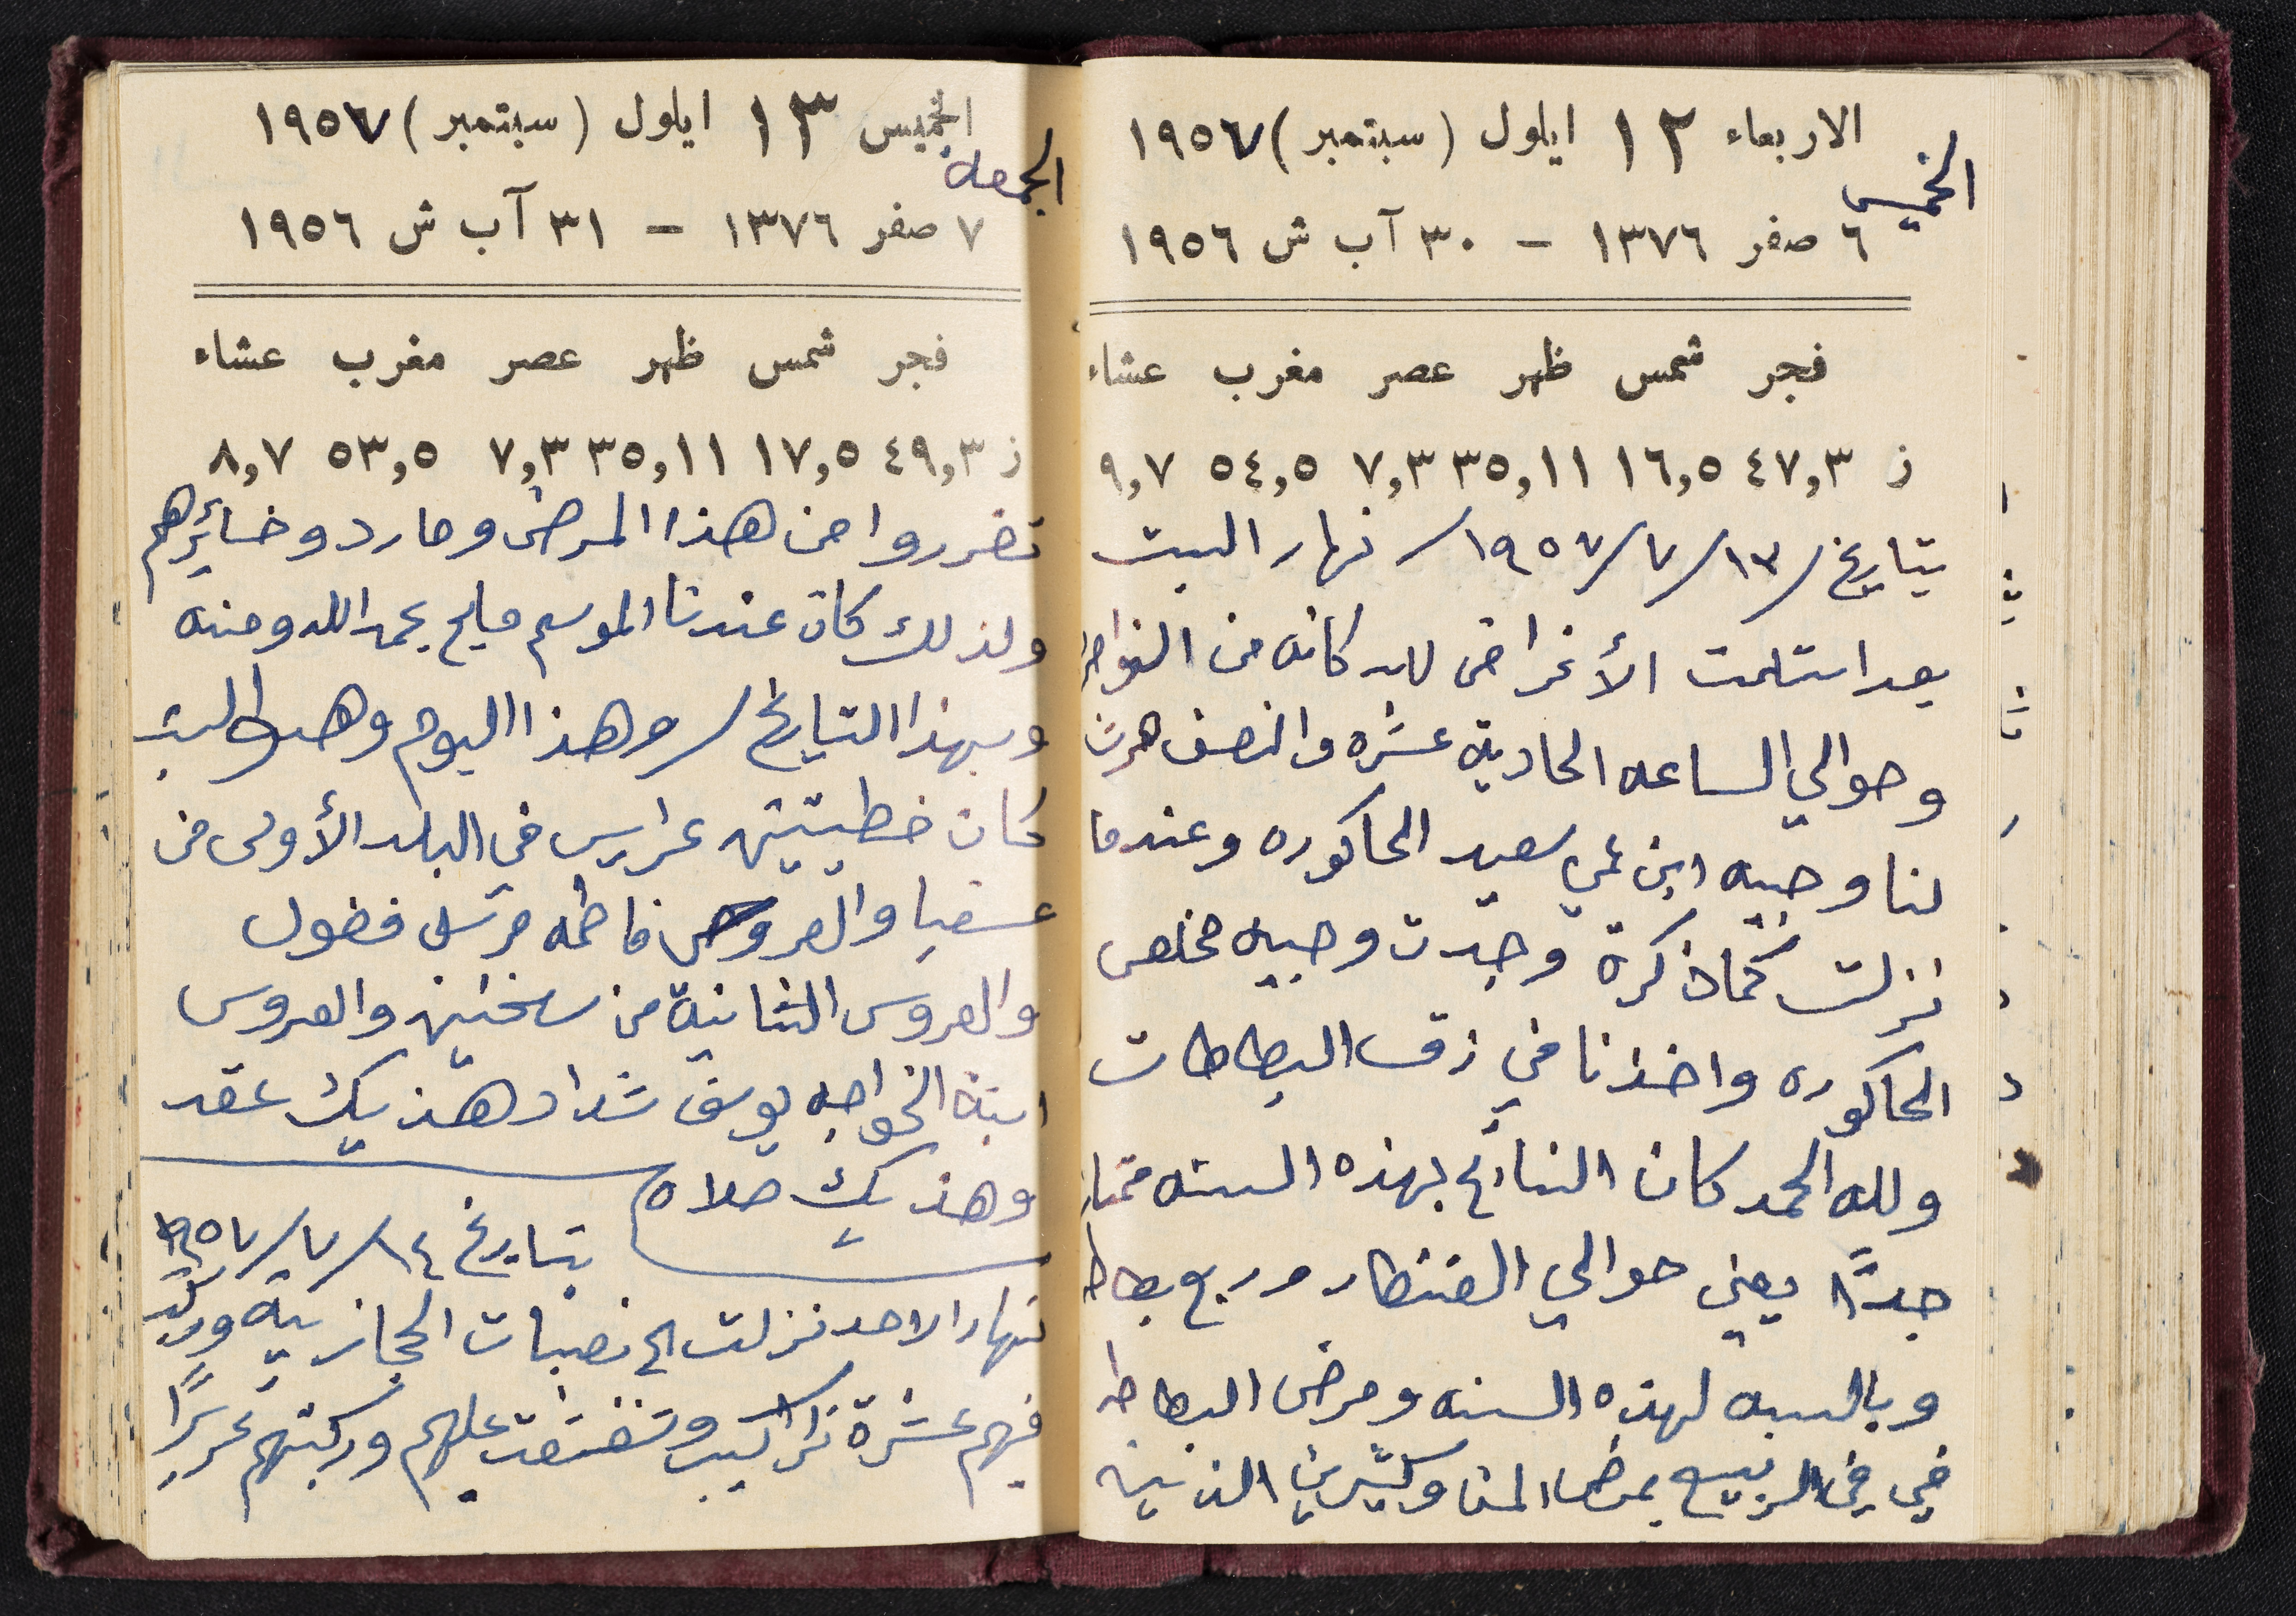 الاربعاء ١٢ ايلول (سبتمبر) ١٩٥٧
الخميس
٦ صفر ١٣٧٦ – ٣٠ آب ش ١٩٥٦
فجر شمس ظهر عصر مغرب عشاء
ز ٤٧,٣ ١٦,٥ ٣٥,١١ ٧,٣ ٥٤,٥ ٩,٧
بتاريخ /١٣/٧/١٩٥٧/ نهار السبت
بعد استلمت الأغراض للدكانه من
وحوالي الساعه الحادية عشره والنصف هرت
لنا وجيه ابن عمي سعيد الحاكوره وعندما
نزلت كما ذكرة وجدت وجيه مخلص
الحاكوره واخذنا في زق البطاطات
ولله الحمد كان النتائج لهذه السنه ممتاز
جدًا يعني حوالي القنطار وربع بطاط
وبالنسبه لهذه السنه ومرض البطاطه
في في الربيع بمرض المن وكثيرين الذين
الخميس ١٣ ايلول (سبتمبر) ١٩٥٧
الجمعة
٧ صفر ١٣٧٦ – ٣١ آب ش ١٩٥٦
فجر شمس ظهر عصر مغرب عشاء
ز ٤٩,٣ ١٧,٥ ٣٥,١١ ٧,٣ ٥٣,٥ ٨,٧
تضرروا من هذا المرض وما ردو خسائرهم
ولذلك كان عندنا الموسم مليح بحمد الله ومنه
وبهذا التاريخ / وهذا اليوم وهو السبت
كان خطيبتين عرايس في البلد الأولى من
عسفيا والعروس فاطمه مرسل فضول
والعروس الثانية من سخنين والعروس
ابنة الخواجه يوسف شداد هذيك عقد
وهذيك صلاه
بتاريخ ١٤/٧/١٩٥٧
نهار الاحد نزلت الى نصبات الجازية
فيهم عشرة تراكيب وتفقدت عليهم وركبتهم